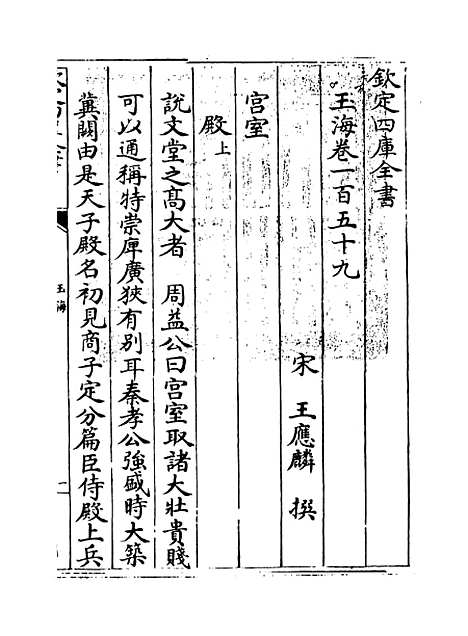 欽定四庫全書
玉海卷一百五十九
宋 王應麟 撰
宮室
殿上
說文堂之髙大者 周益公曰宮室取諸大壯貴賤
可以通稱特崇庳廣狹有别耳秦孝公強盛時大築
冀闕由是天子殿名初見商子定分篇臣侍殿上兵
玉海